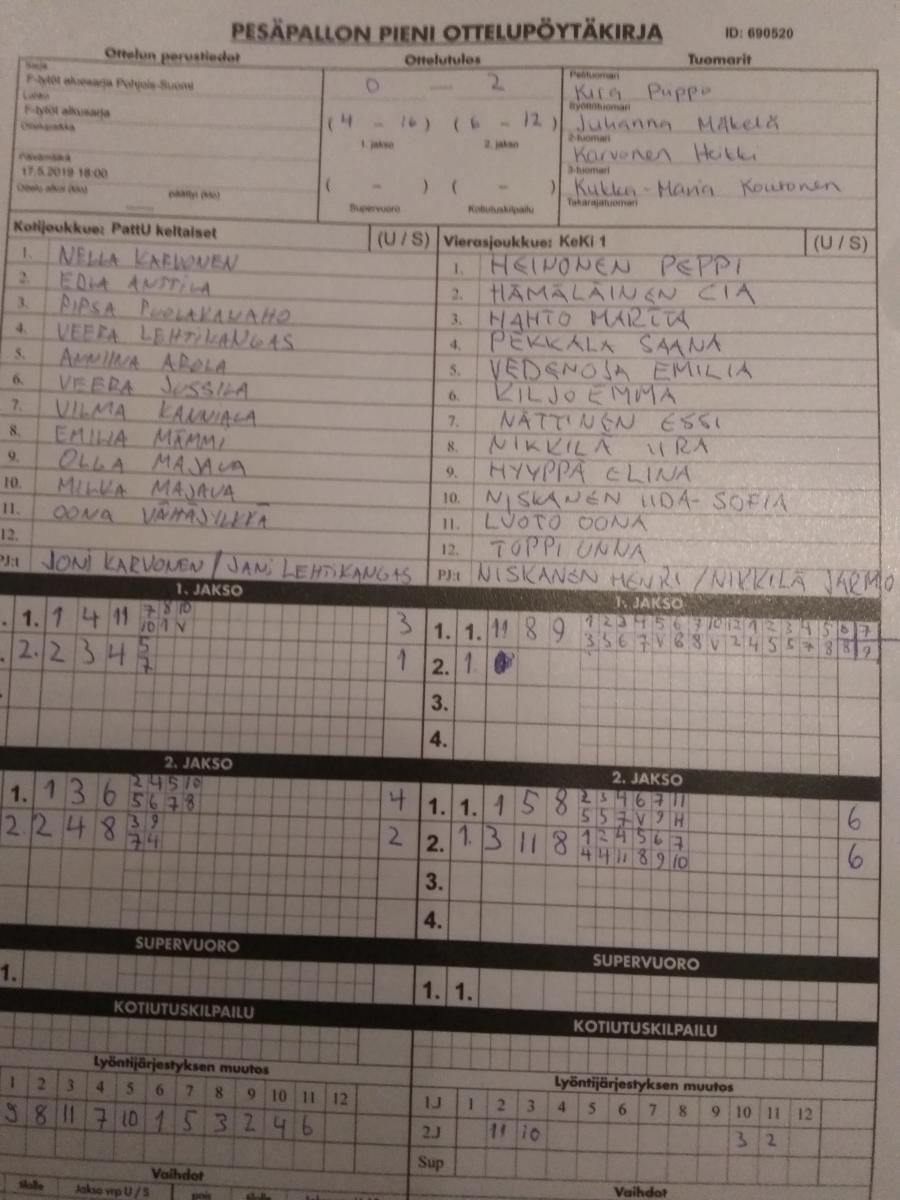 PESÄPALLON PIENI OTTELUPÖYTÄKIRJA ID: 690520
Ottelun perustiedot Ottelutulos Tuomarit
Sarja
F-tytöt aluesarja Pohjois-Suomi
Lohko
F-tytöt alkusarja
Ottelupaikka
Päivämäärä
17.5.2019 18:00
Ottelu alkoi (klo) päättyi (klo)
0 — 2
(4 - 16) (6 - 12)
1. jakso 2. jakso
( - ) ( - )
Supervuoro Kotiutuskilpailu
Pelituomari
Kira Puppo
Syöttötuomari
Juhanna Mäkelä
2-tuomari
Karvonen Heikki
3-tuomari
Kukka-Maria Koutonen
Takarajatuomari
Kotijoukkue: PattU keltaiset (U / S)
1. NELLA KARVONEN
2. EDLA ANTTILA
3. PIPSA PUOLAKANAHO
4. VEERA LEHTIKANGAS
5. ANNIINA AROLA
6. VEERA JUSSILA
7. VILMA KANNIALA
8. EMILIA MÄMMI
9. OLGA MAJAVA
10. MILKA MAJAVA
11. OONA VÄHÄJYLKKÄ
12.
PJ:t JONI KARVONEN / JANI LEHTIKANGAS
Vierasjoukkue: KeKi 1 (U / S)
1. HEINONEN PEPPI
2. HÄMÄLÄINEN CIA
3. HAHTO MARITA
4. PEKKALA SAANA
5. VEDENOJA EMILIA
6. KILJO EMMA
7. NÄTTINEN ESSI
8. NIKKILÄ IIRA
9. HYYPPÄ ELINA
10. NISKANEN IIDA-SOFIA
11. LUOTO OONA
12. TOPPI UNNA
PJ:t NISKANEN HENRI / NIKKILÄ JARMO
1. JAKSO
1. 1 4 11 7 8 10 3
10 1 V
2. 2 3 4 5 1
7
1. JAKSO
1. 1. 11 8 9 1 2 3 4 5 6 7 10 12 1 2 3 4 5 6 7
3 5 6 7 V 6 8 V 2 4 5 5 7 8 8 9
2. 1.
3.
4.
2. JAKSO
1. 1 3 6 2 4 5 10 4
5 6 7 8
2. 2 4 8 3 9 2
7 4
2. JAKSO
1. 1. 1 5 8 2 3 4 6 7 11 6
5 5 7 V 9 H
2. 1. 3 11 8 1 2 4 5 6 7 6
4 4 11 8 9 10
3.
4.
SUPERVUORO
1.
SUPERVUORO
1. 1.
KOTIUTUSKILPAILU
KOTIUTUSKILPAILU
Lyöntijärjestyksen muutos
1 2 3 4 5 6 7 8 9 10 11 12
9 8 11 7 10 1 5 3 2 4 6
Lyöntijärjestyksen muutos
1J 1 2 3 4 5 6 7 8 9 10 11 12
2J 11 10 3 2
Sup
Vaihdot
sisälle Jakso vrp U / S pois sisälle
Vaihdot